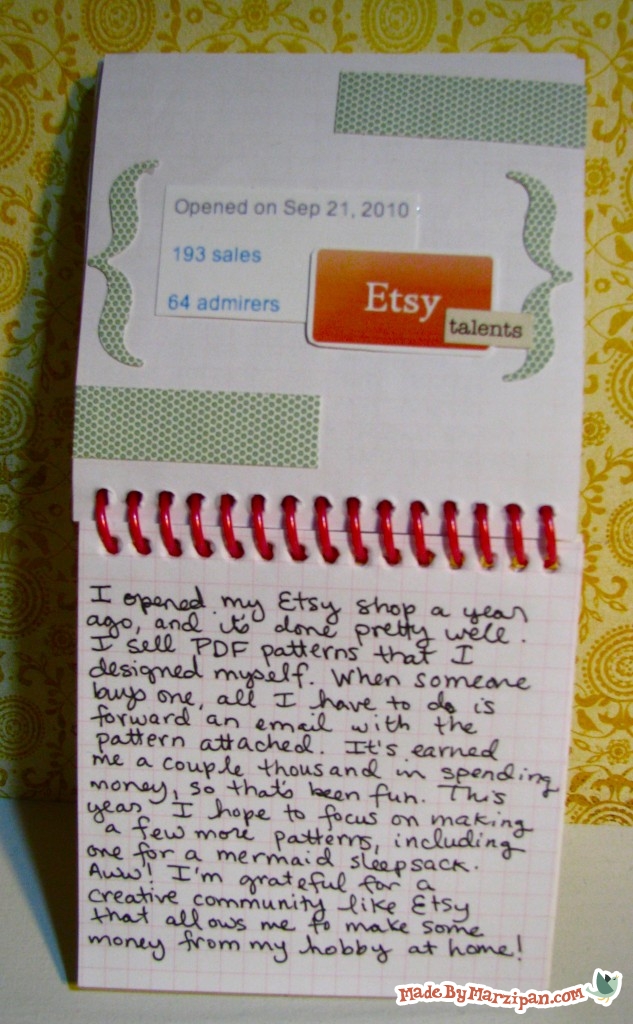 Opened on Sep 21, 2010
193 sales
64 admirers
Etsy
talents
I opened my Etsy shop a year
ago, and it's done pretty well.
I sell PDF patterns that I
designed myself. When someone
buys one, all I have to do is
forward an email with the
pattern attached. It's earned
me a couple thousand in spending
money, so that's been fun. This
year I hope to focus on making
a few more patterns, including
one for a mermaid sleepsack.
Aww! I'm grateful for a
creative community like Etsy
that allows me to make some
money from my hobby at home!
MadeByMarzipan.com